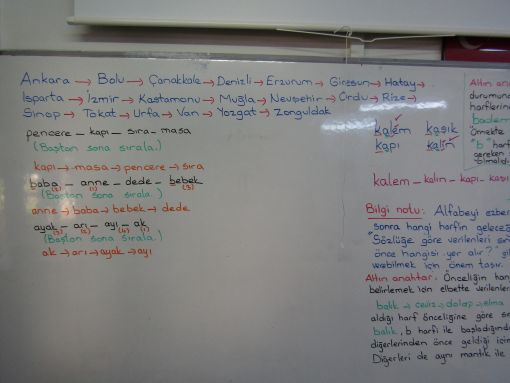 Ankara → Bolu → Çanakkale → Denizli → Erzurum → Giresun → Hatay →
Isparta → İzmir → Kastamonu → Muğla → Nevşehir → Ordu → Rize →
Sinop → Tokat → Urfa → Van → Yozgat → Zonguldak
pencere – kapı – sıra – masa
(Baştan sona sırala.)
kapı → masa → pencere → sıra
baba – anne – dede – bebek
(2) (1) (3)
(Baştan sona sırala.)
anne → baba → bebek → dede
ayak – arı – ayı – ak
(3) (2) (4) (1)
(Baştan sona sırala.)
ak → arı → ayak → ayı
kalem kaşık
kapı kalın
kalem – kalın – kapı – kaşı
Altın ana
durumund
harflerin
badem
Örnekte
"b" harf
gereken
olmalıd
Bilgi notu: Alfabeyi ezber
sonra hangi harfin geleceğ
"Sözlüğe göre verilenleri sır
önce hangisi yer alır?" gi
verebilmek için önem taşır.
Altın anahtar: Önceliğin han
belirlemek için elbette verilenler
balık → ceviz → dolap → elma
aldığı harf önceliğine göre sı
balık, b harfi ile başladığınd
diğerlerinden önce geldiği için
Diğerleri de aynı mantık ile